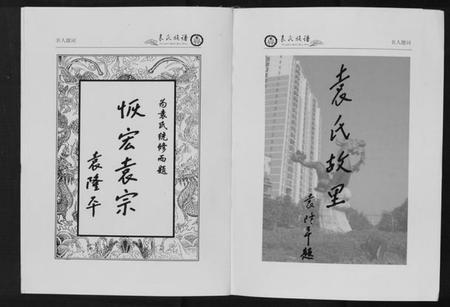 名人题词
袁氏族谱
为袁氏统修而题
恢宏袁宗
袁隆平
袁氏族谱
名人题词
袁氏故里
袁隆平题